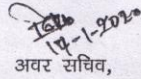 17-1-2020
अवर सचिव,